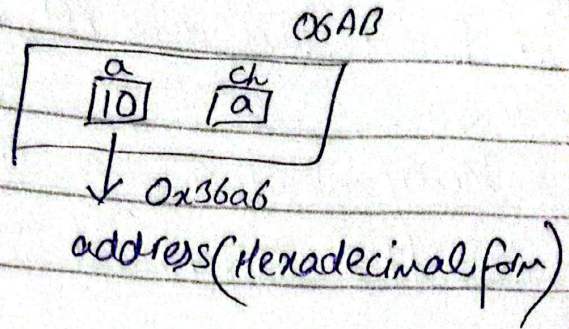 06AB
a ch
10 a
0x36a6
address (Hexadecimal form)